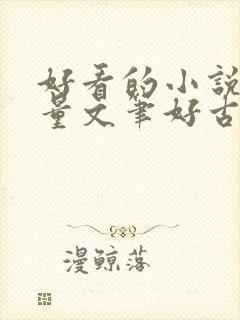 好看的小說
量文筆好古
漫鯨落